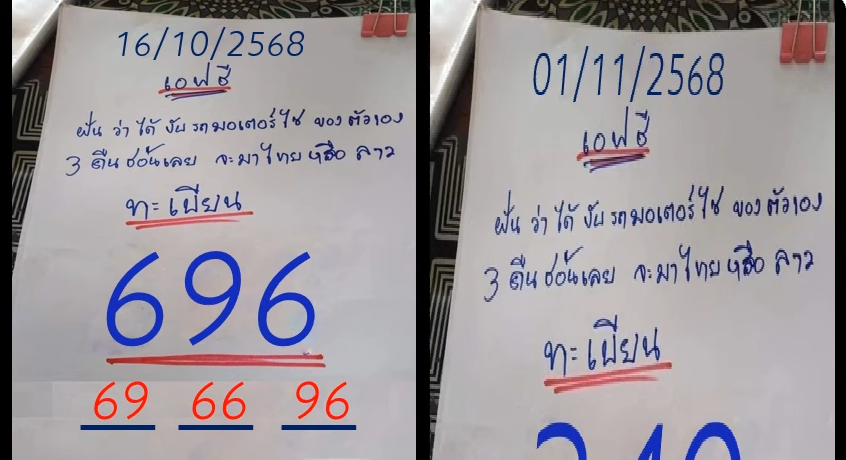 16/10/2568
เอฟซี
ฝัน ว่า ได้ ขับ รถมอเตอร์ไซ ของ ตัวเอง
3 คืน ซ้อนเลย จะมาไทย หรือ ลาว
ทะเบียน
696
69 66 96
01/11/2568
เอฟซี
ฝัน ว่า ได้ ขับ รถมอเตอร์ไซ ของ ตัวเอง
3 คืน ซ้อนเลย จะมาไทย หรือ ลาว
ทะเบียน